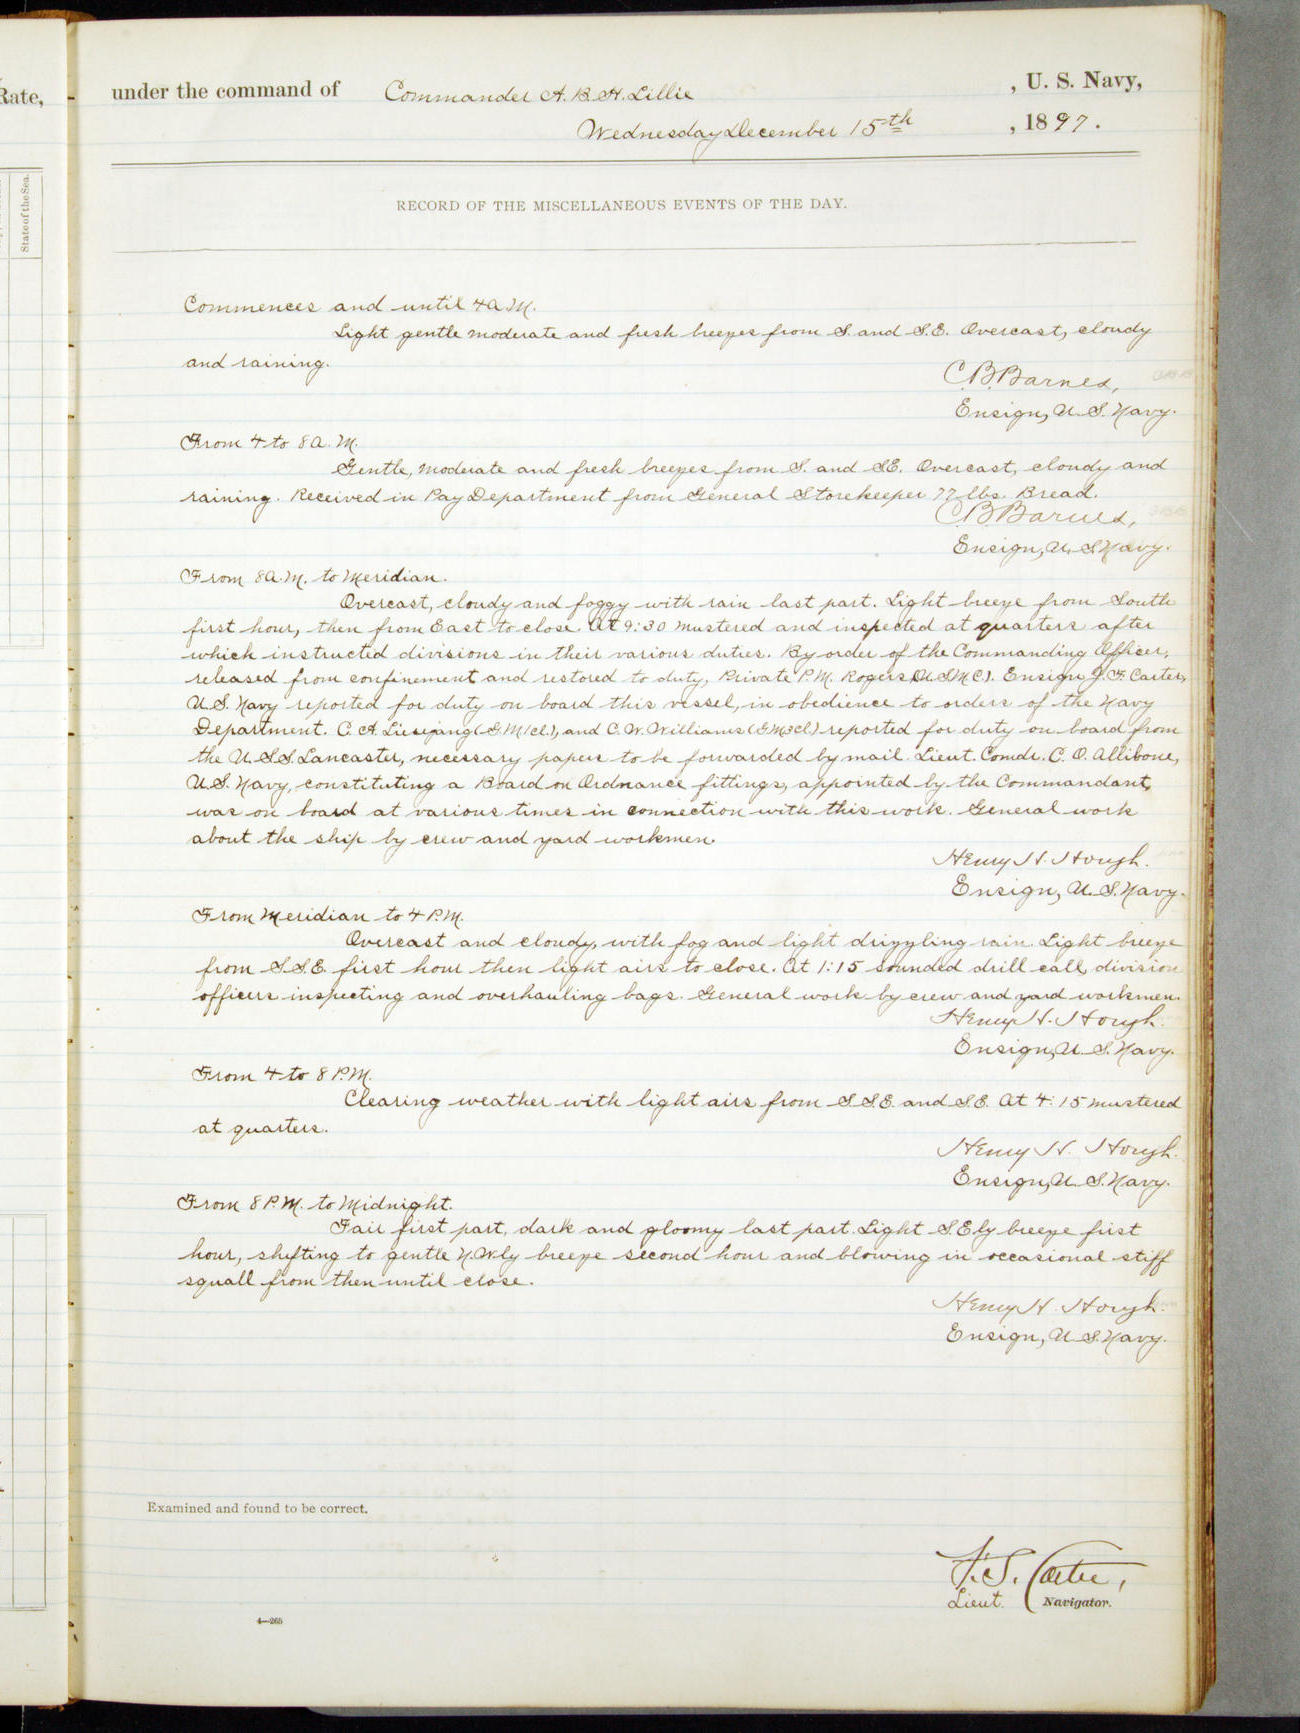 Rate,
State of the Sea.
under the command of Commander A. B. H. Lillie , U. S. Navy,
Wednesday December 15th , 1897.
RECORD OF THE MISCELLANEOUS EVENTS OF THE DAY.
Commences and until 4 A.M.
Light gentle moderate and fresh breezes from S. and S.E. Overcast, cloudy
and raining.
C.B. Barnes,
Ensign, U.S. Navy.
From 4 to 8 A.M.
Gentle, moderate and fresh breezes from S. and SE. Overcast, cloudy and
raining. Received in Pay Department from General Storekeeper 77 lbs. Bread.
C.B. Barnes,
Ensign, U.S. Navy.
From 8 A.M. to Meridian.
Overcast, cloudy and foggy with rain last part. Light breeze from South
first hour, then from East to close. At 9:30 mustered and inspected at quarters after
which instructed divisions in their various duties. By order of the Commanding Officer,
released from confinement and restored to duty, Private P.M. Rogers (U.S.M.C.). Ensign J.F. Carter,
U.S. Navy reported for duty on board this vessel, in obedience to orders of the Navy
Department. C. A. Liesejang (G.M. 1 cl.), and C. W. Williams (GM3cl) reported for duty on board from
the U.S.S. Lancaster, necessary papers to be forwarded by mail. Lieut. Comdr. C. O. Allibone,
U.S. Navy, constituting a Board on Ordnance fittings, appointed by the Commandant,
was on board at various times in connection with this work. General work
about the ship by crew and yard workmen.
Henry H. Hough.
Ensign, U.S. Navy.
From Meridian to 4 P.M.
Overcast and cloudy, with fog and light drizzling rain. Light breeze
from S.S.E. first hour then light airs to close. At 1:15 sounded drill call, division
officers inspecting and overhauling bags. General work by crew and yard workmen.
Henry H. Hough.
Ensign, U.S. Navy.
From 4 to 8 P.M.
Clearing weather with light airs from S.S.E. and S.E. At 4:15 mustered
at quarters.
Henry H. Hough.
Ensign, U.S. Navy.
From 8 P.M. to Midnight.
Fair first part, dark and gloomy last part. Light S.Ely breeze first
hour, shifting to gentle N.Wly breeze second hour and blowing in occasional stiff
squall from then until close.
Henry H. Hough.
Ensign, U.S. Navy.
Examined and found to be correct.
Carter,
Lieut. Navigator.
4—265